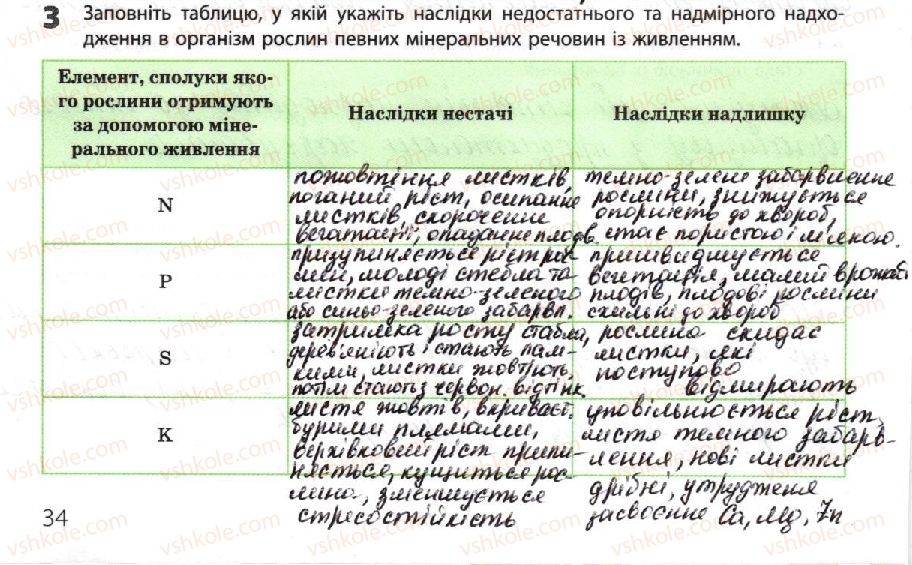 3 Заповніть таблицю, у якій укажіть наслідки недостатнього та надмірного надхо-
дження в організм рослин певних мінеральних речовин із живленням.
Елемент, сполуки яко-
го рослини отримують
за допомогою міне-
рального живлення
Наслідки нестачі
Наслідки надлишку
N
пожовтіння листків,
поганий ріст, осипання
листків, скорочення
вегатації, опадання плодів.
темно-зелене забарвлення
рослини, знижується
опорність до хвороб,
стає пористою і м'якою.
P
призупиняється ріст рос
лини, молоді стебла та
листки темно-зеленого
або синьо-зеленого забарвл.
пришвидшується
вегитація, малий врожай
плодів, плодові рослини
схильні до хвороб
S
затримка росту стебла,
дерев'яніють і стають лам-
кими, листки жовтіють,
потім стають з червон. відтінк.
рослина скидає
листки, які
поступово
відмирають
K
листя жовтів, вкриваєт.
бурими плямами,
верхівковий ріст припи-
няється, кущиться рос-
лина, зменшується
стресостійкість
уповільнюється ріст,
листя темного забарв-
лення, нові листки
дрібні, утруднення
засвоєння Ca, Mg, Zn
34
vshkole.com